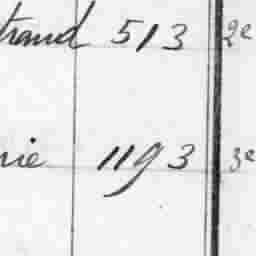 trand 513 2e
rie 1193 3e